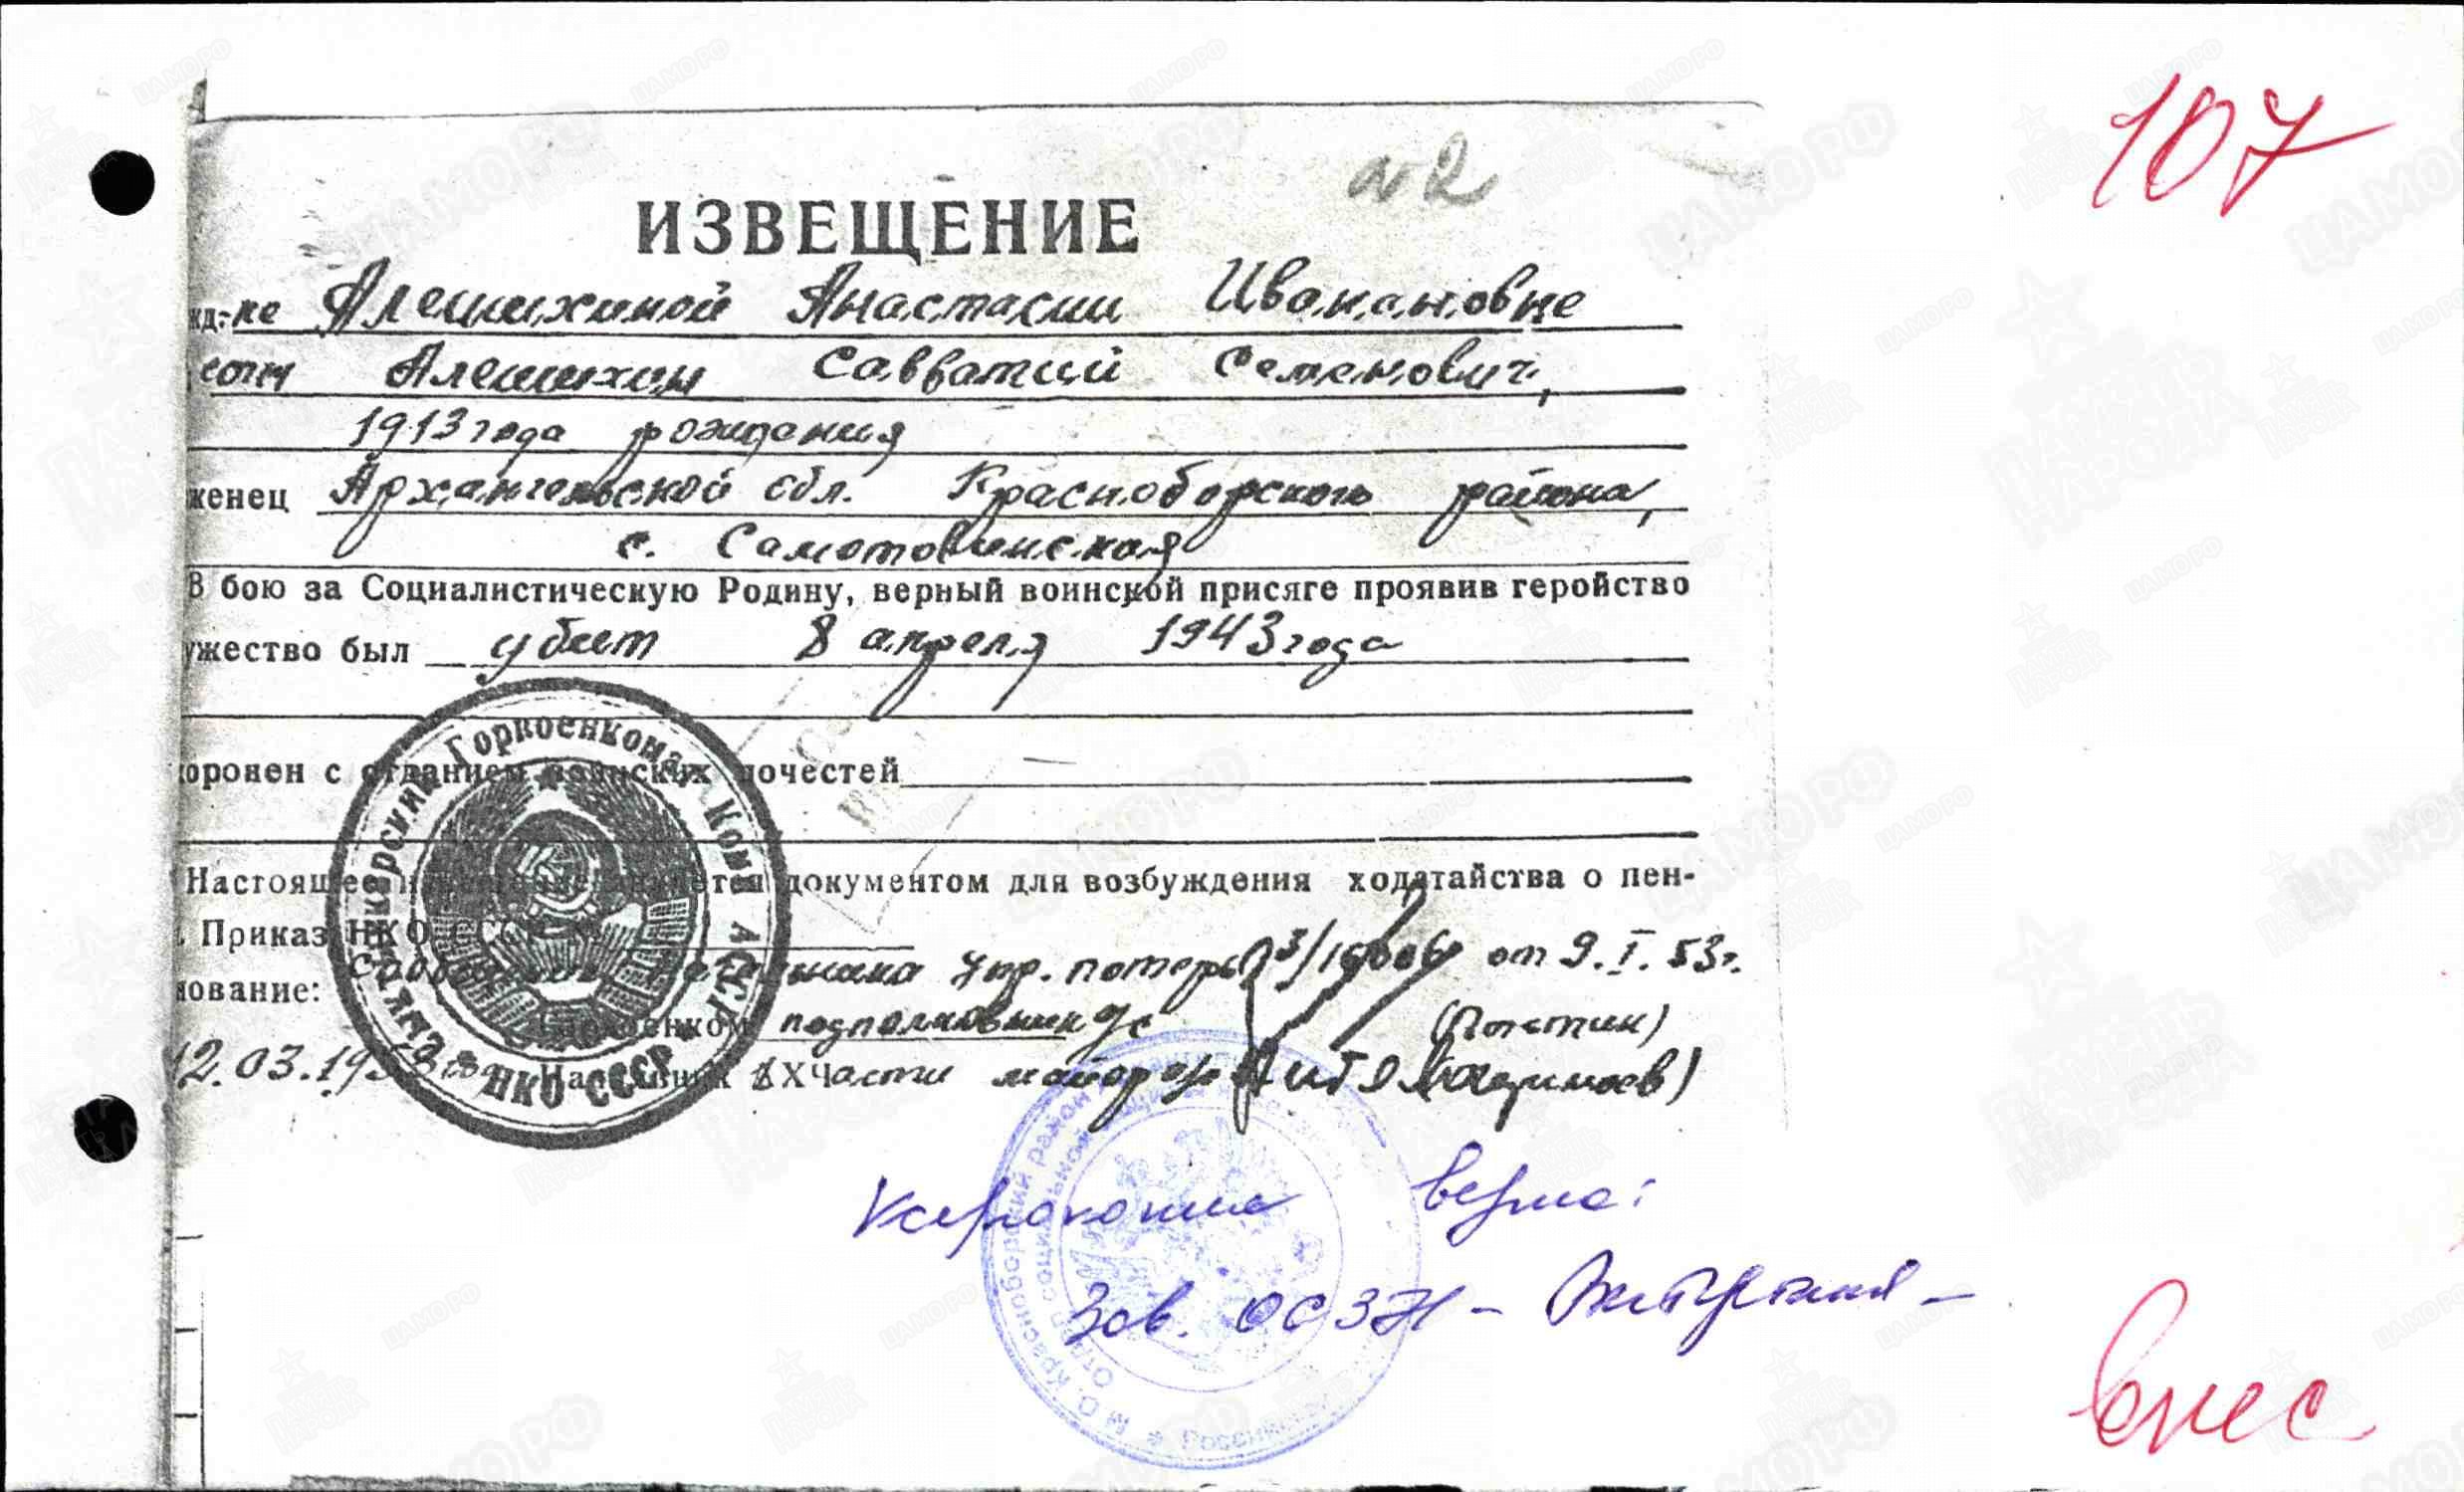 107
№2
ИЗВЕЩЕНИЕ
жд-ке Алешихиной Анастасии Ивановне
Алешихин Савватий Семенович,
1913 года рождения
женец Архангельской обл. Красноборского района,
с. Самотовинская
В бою за Социалистическую Родину, верный воинской присяге проявив геройство
ужество был убит 8 апреля 1943 года
оронен с отданием воинских почестей
Настоящее извещение является документом для возбуждения ходатайства о пен-
. Приказ НКО СССР №
нование: упр. потерь от 9.I.53г.
подполковник а/с
12.03.1953 Начальник Части майор а/с
Горвоенкомат Коми АССР
НКО СССР
Ксерокопия верна:
Зав. ОСЗН -
внес